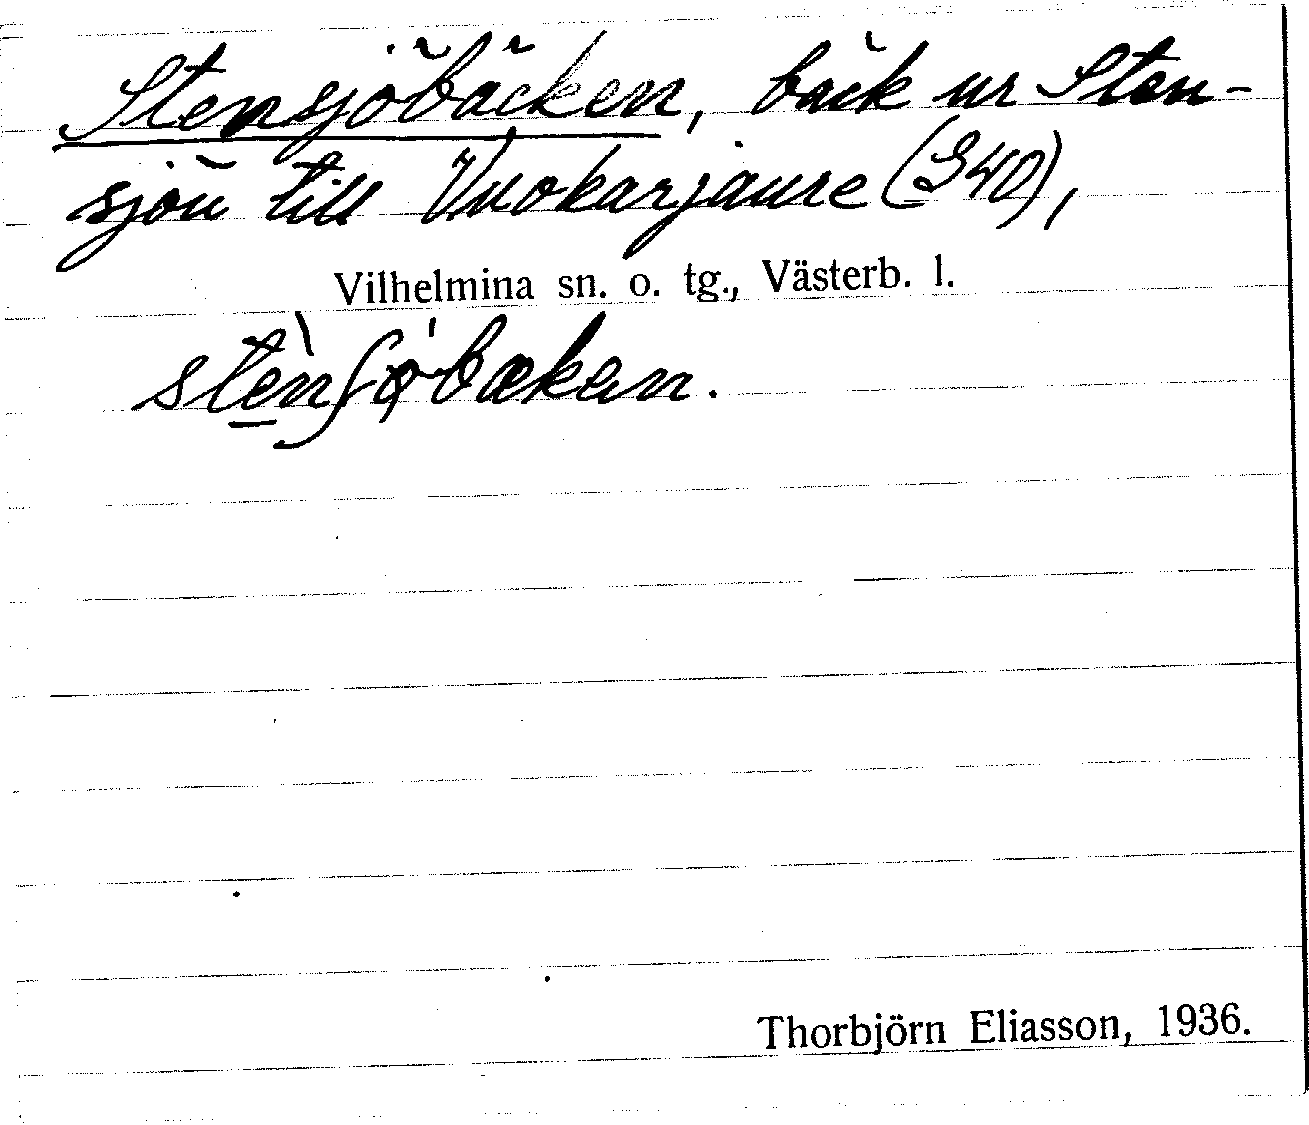 Stensjöbäcken, bäck ur Sten-
sjön till Vuokarjaure (S40),
Vilhelmina sn. o. tg., Västerb. l.
Thorbjörn Eliasson, 1936.